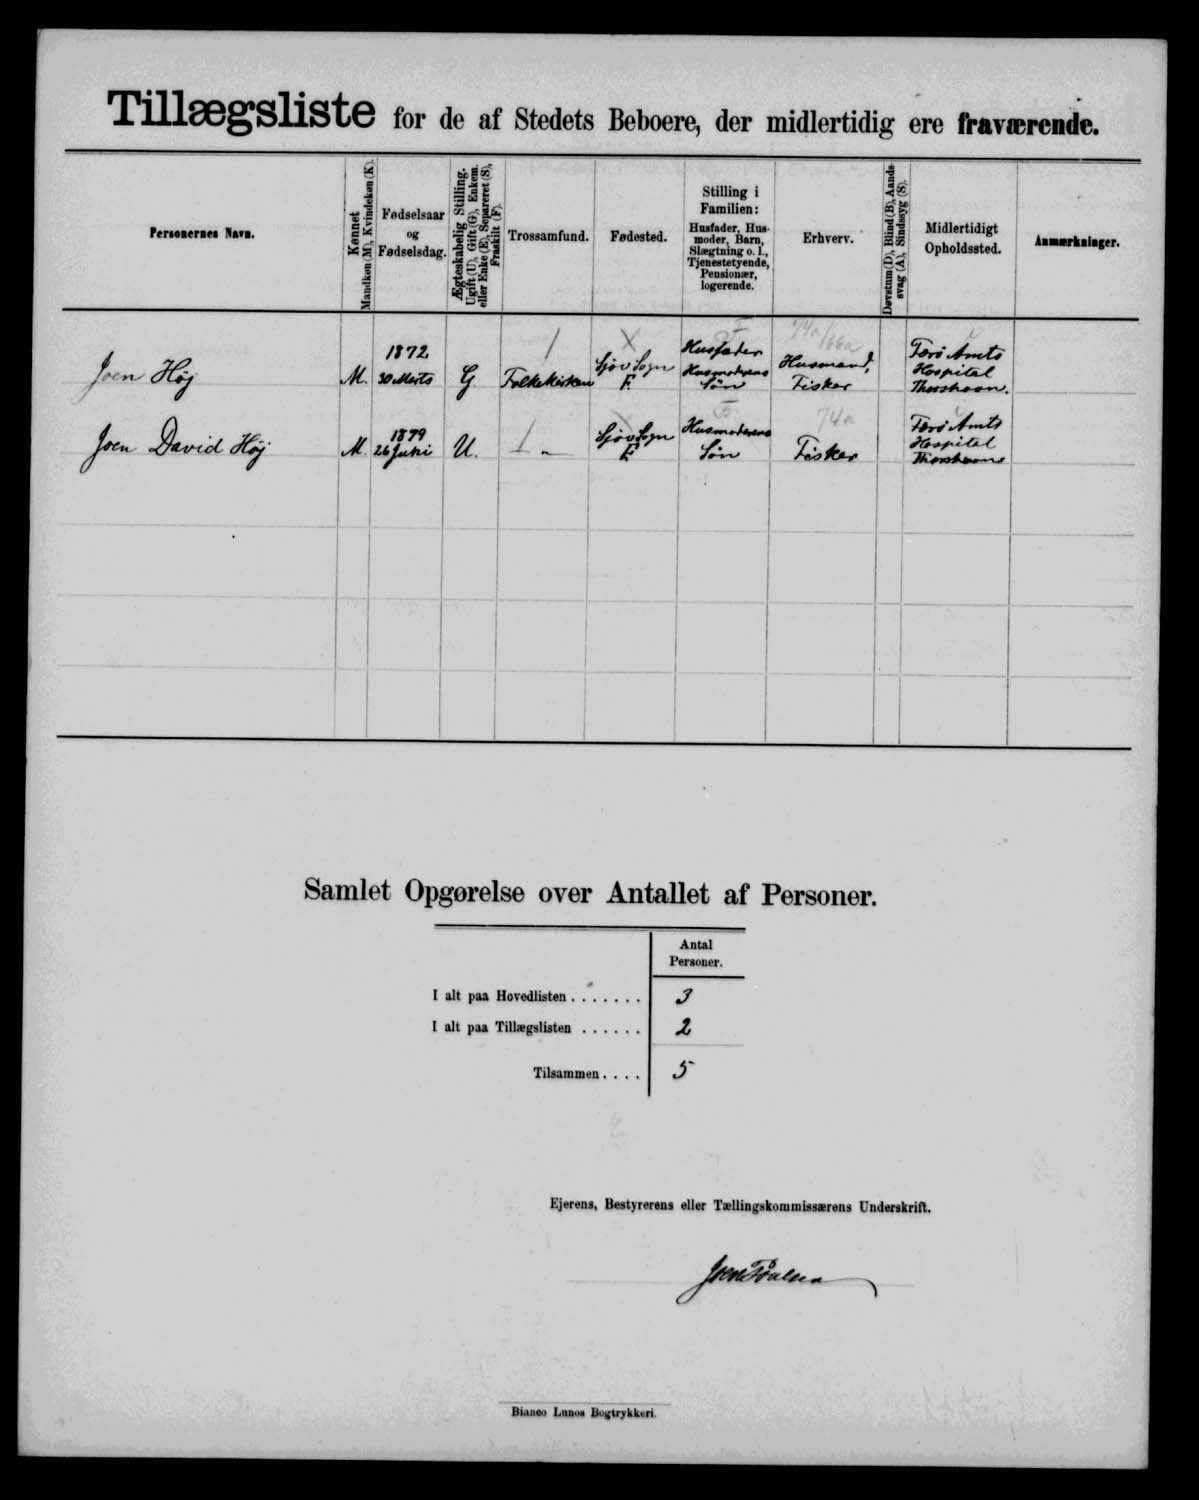 Tillægsliste for de af Stedets Beboere, der midlertidig ere fraværende.
Personernes Navn.
Kønnet
Mandkøn (M), Kvindekøn (K).
Fødselsaar
og
Fødselsdag.
Ægteskabelig Stilling.
Ugift (U), Gift (G), Enkem.
eller Enke (E), Separeret (S),
Fraskilt (F).
Trossamfund.
Fødested.
Stilling i
Familien:
Husfader, Hus-
moder, Barn,
Slægtning o. l.,
Tjenestetyende,
Pensionær,
logerende.
Erhverv.
Døvstum (D), Blind (B), Aands-
svag (A), Sindssyg (S).
Midlertidigt
Opholdssted.
Anmærkninger.
Joen Høj
M.
1872
30 Marts
G.
Folkekirken
Sjov Sogn
F.
Husfader
Husmoderens
Søn
74a/66a
Husmand,
Fisker
Færø Amts
Hospital
Thorshavn.
Joen David Høj
M.
1879
26 Juni
U.
Sjov Sogn
F.
Husmoderens
Søn
74a
Fisker
Færø Amts
Hospital
Thorshavn
Samlet Opgørelse over Antallet af Personer.
Antal
Personer.
I alt paa Hovedlisten . . . . . . . 3
I alt paa Tillægslisten . . . . . . 2
Tilsammen . . . . 5
Ejerens, Bestyrerens eller Tællingskommissærens Underskrift.
Bianco Lunos Bogtrykkeri.